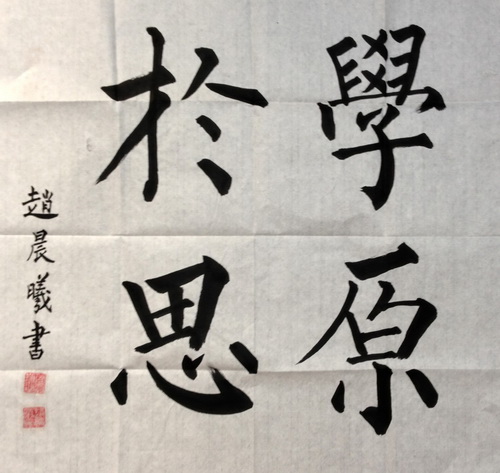 學原
於思
趙晨曦書